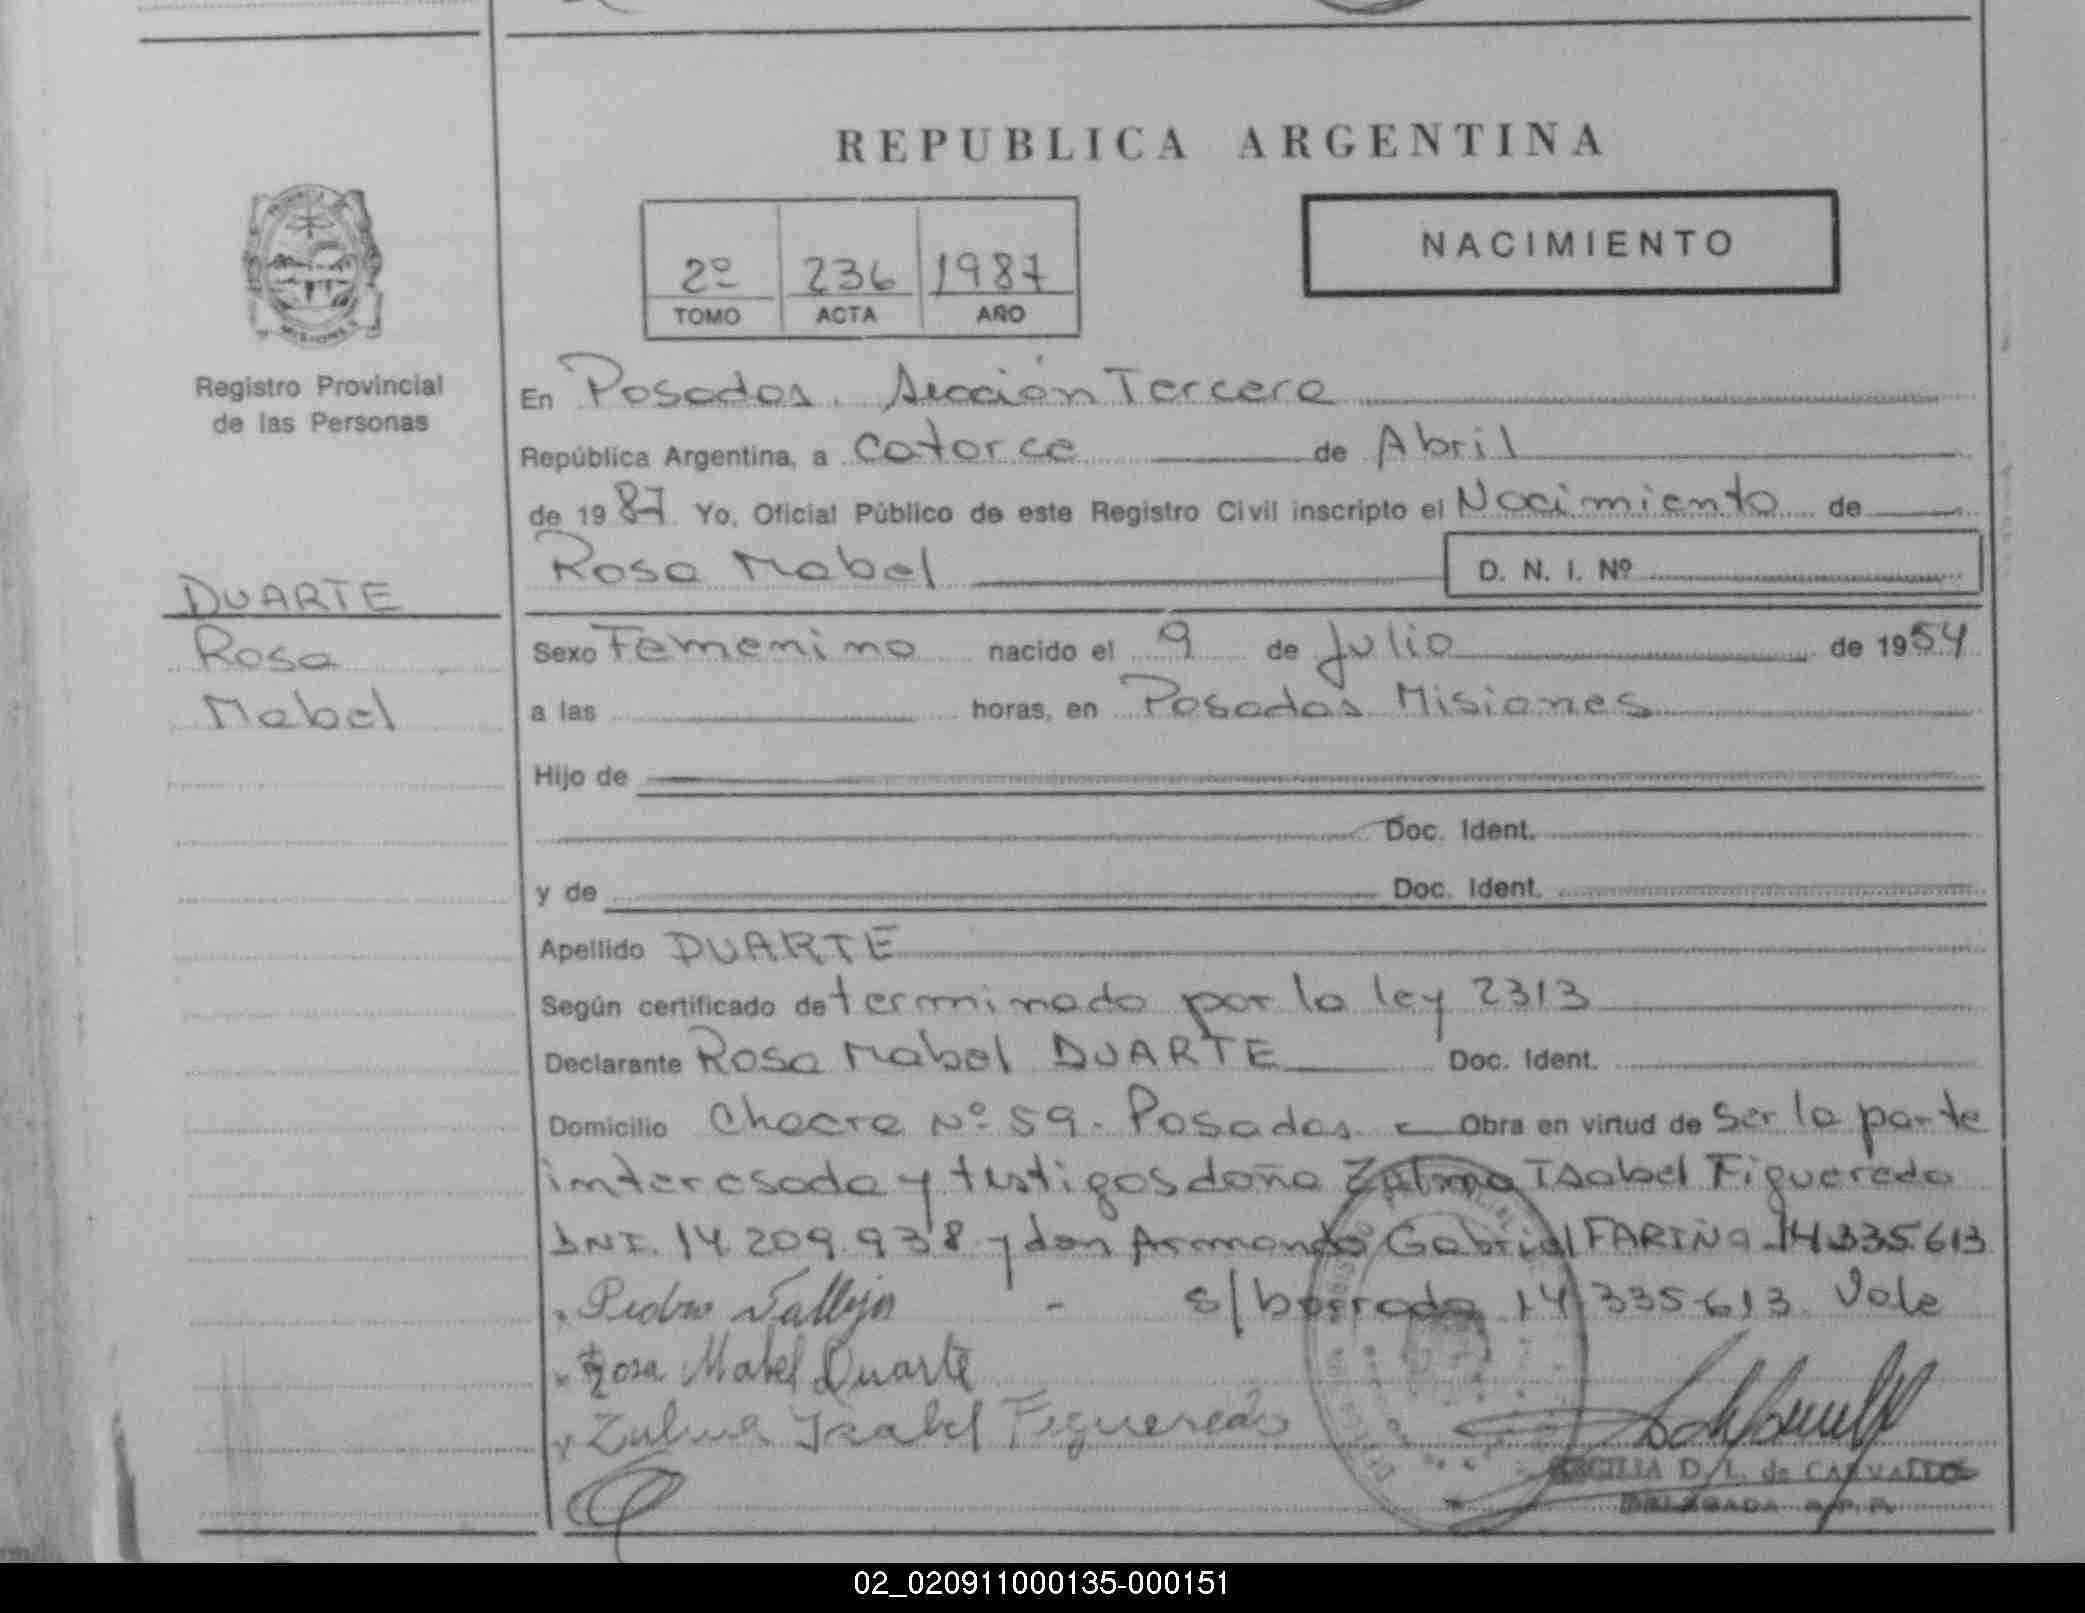 REPUBLICA ARGENTINA
NACIMIENTO
2º 236 1987
TOMO ACTA AÑO
MISIONES
Registro Provincial
de las Personas
En Posadas. Sección Tercera
República Argentina, a Catorce de Abril
de 1987 Yo, Oficial Público de este Registro Civil inscripto el Nacimiento de
Rosa Mabel D. N. I. Nº
DUARTE
Rosa
Mabel
Sexo Femenino nacido el 9 de Julio de 1954
a las horas, en Posadas Misiones
Hijo de
Doc. Ident.
y de Doc. Ident.
Apellido DUARTE
Según certificado determinado por la ley 2313
Declarante Rosa Mabel DUARTE Doc. Ident.
Domicilio Chacra Nº 59. Posadas Obra en virtud de ser la parte
interesada y testigos doña Zulma Isabel Figueredo
DNI. 14.209.938 y don Armando Gabriel FARIÑA 14.335.613
Pedro Vallejo - s/borrado 14.335.613. Vale
Rosa Mabel Duarte
Zulma Isabel Figueredo
CECILIA D. L. de CARVALLO
DELEGADA R.P.P.
02_020911000135-000151